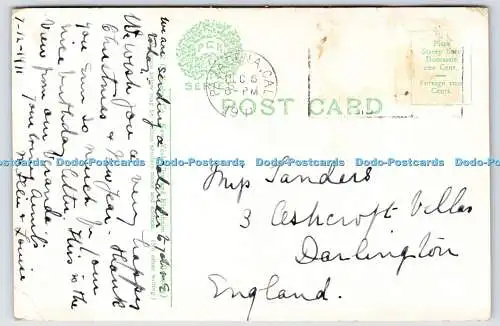 7-12-1911
We are sending a calendar to Aunt E
We wish you a very happy
Christmas & New Year. Thank
you ever so much for your
nice birthday letter. This is the
view from our veranda
Your loving Aunts
& Louie
PASADENA, CAL.
DEC 6
PM
Place
Stamp here
Domestic
one Cent.
Foreign two
Cents.
POST CARD
Miss Sanders
3 Ashcroft Villas
Darlington
England.
Dodo-Postcards Dodo-Postcards Dodo-Postcards Dodo-Postcards Dodo-Postcards Dodo-Postcards Dodo-Postcards